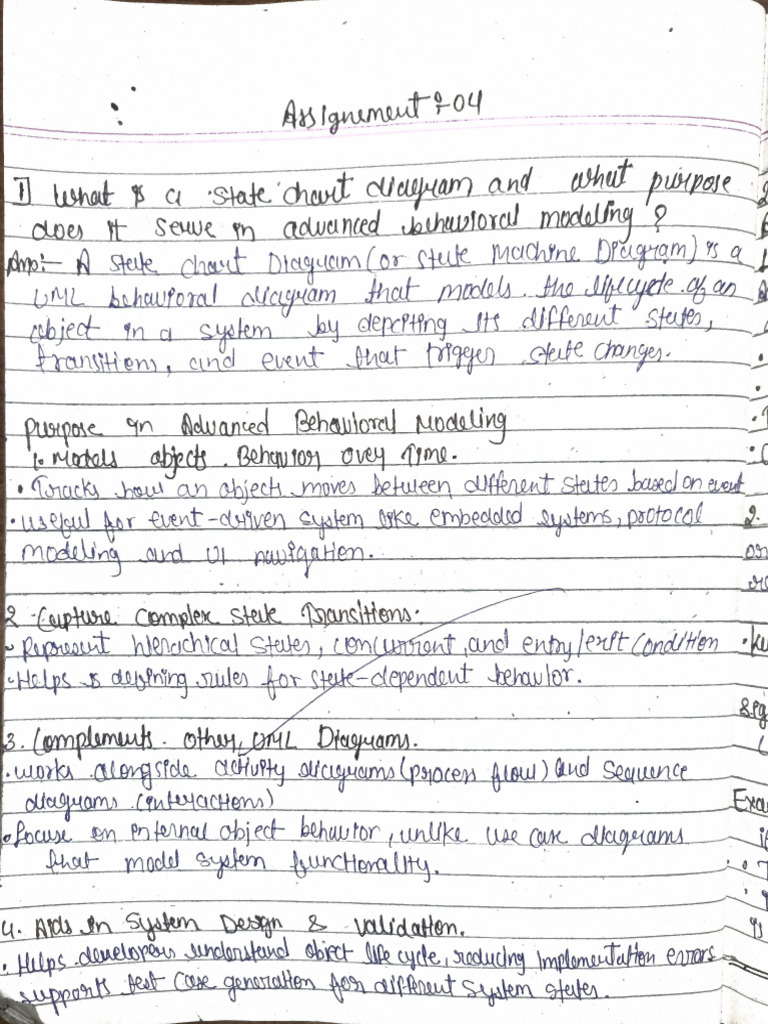 Assignement :- 04
1] What is a state chart diagram and what purpose
does it serve in advanced behavioral modeling ?
Ans:- A state chart Diagram (or state Machine Diagram) is a
UML behavioral diagram that models the lifecycle of an
object in a system by depicting its different states,
transitions, and event that trigger state changes.
purpose in Advanced Behavioral Modeling
1. Models objects Behavior over Time.
• Tracks how an objects moves between different states based on event
• useful for event-driven system like embedded systems, protocol
modeling and UI navigation.
2 Capture Complex State Transitions.
• Represent hierachical states, concurrent, and entry/exit condition
• Helps is defining rules for state-dependent behavior.
3. Complements other UML Diagrams.
• works alongside activity diagrams (process flow) and sequence
diagrams (interactions)
• focuse on internal object behavior, unlike use case diagrams
that model system functionality.
4. Aids in System Design & validation.
• Helps developers understand object life cycle, reducing implementation errors
supports test case generation for different system states.